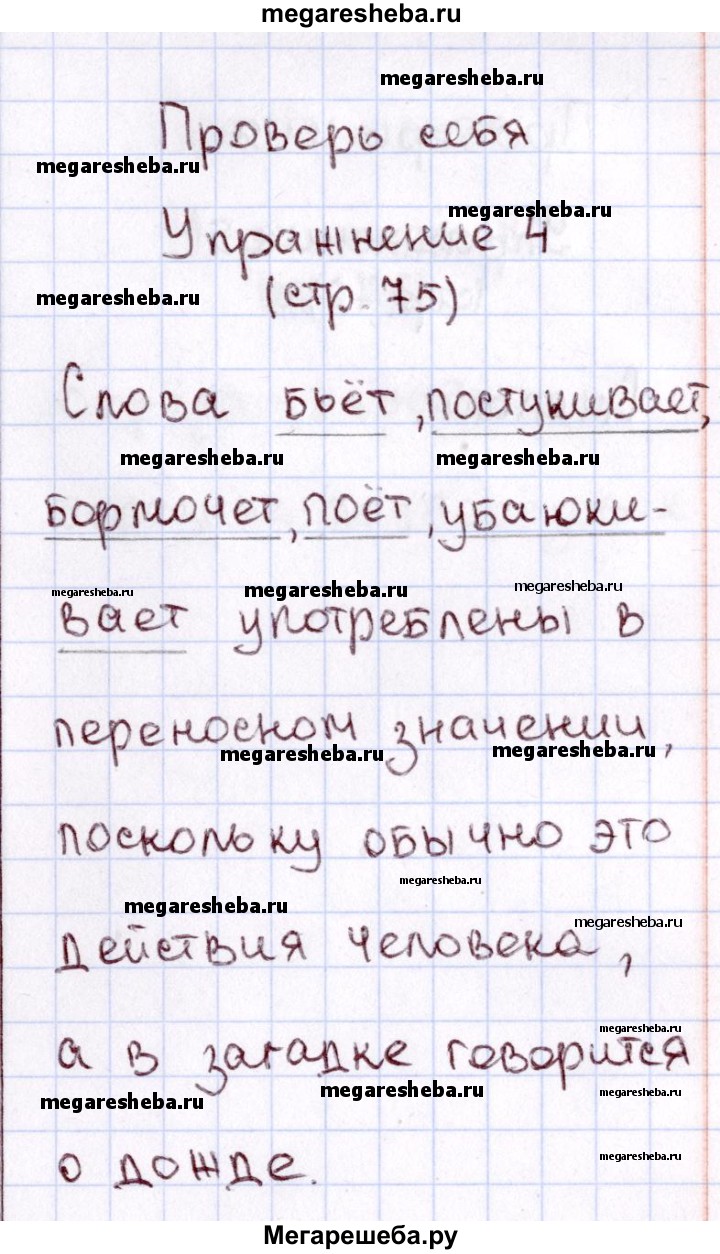 megaresheba.ru
megaresheba.ru
Проверь себя
megaresheba.ru
megaresheba.ru
Упражнение 4
megaresheba.ru
(стр. 75)
Слова бьёт, постукивает,
megaresheba.ru megaresheba.ru
бормочет, поёт, убаюки-
megaresheba.ru megaresheba.ru megaresheba.ru
вает употреблены в
переносном значении,
megaresheba.ru megaresheba.ru
поскольку обычно это
megaresheba.ru
megaresheba.ru megaresheba.ru
действия человека,
megaresheba.ru
а в загадке говорится
megaresheba.ru megaresheba.ru megaresheba.ru
о дожде.
megaresheba.ru
Мегарешеба.ру